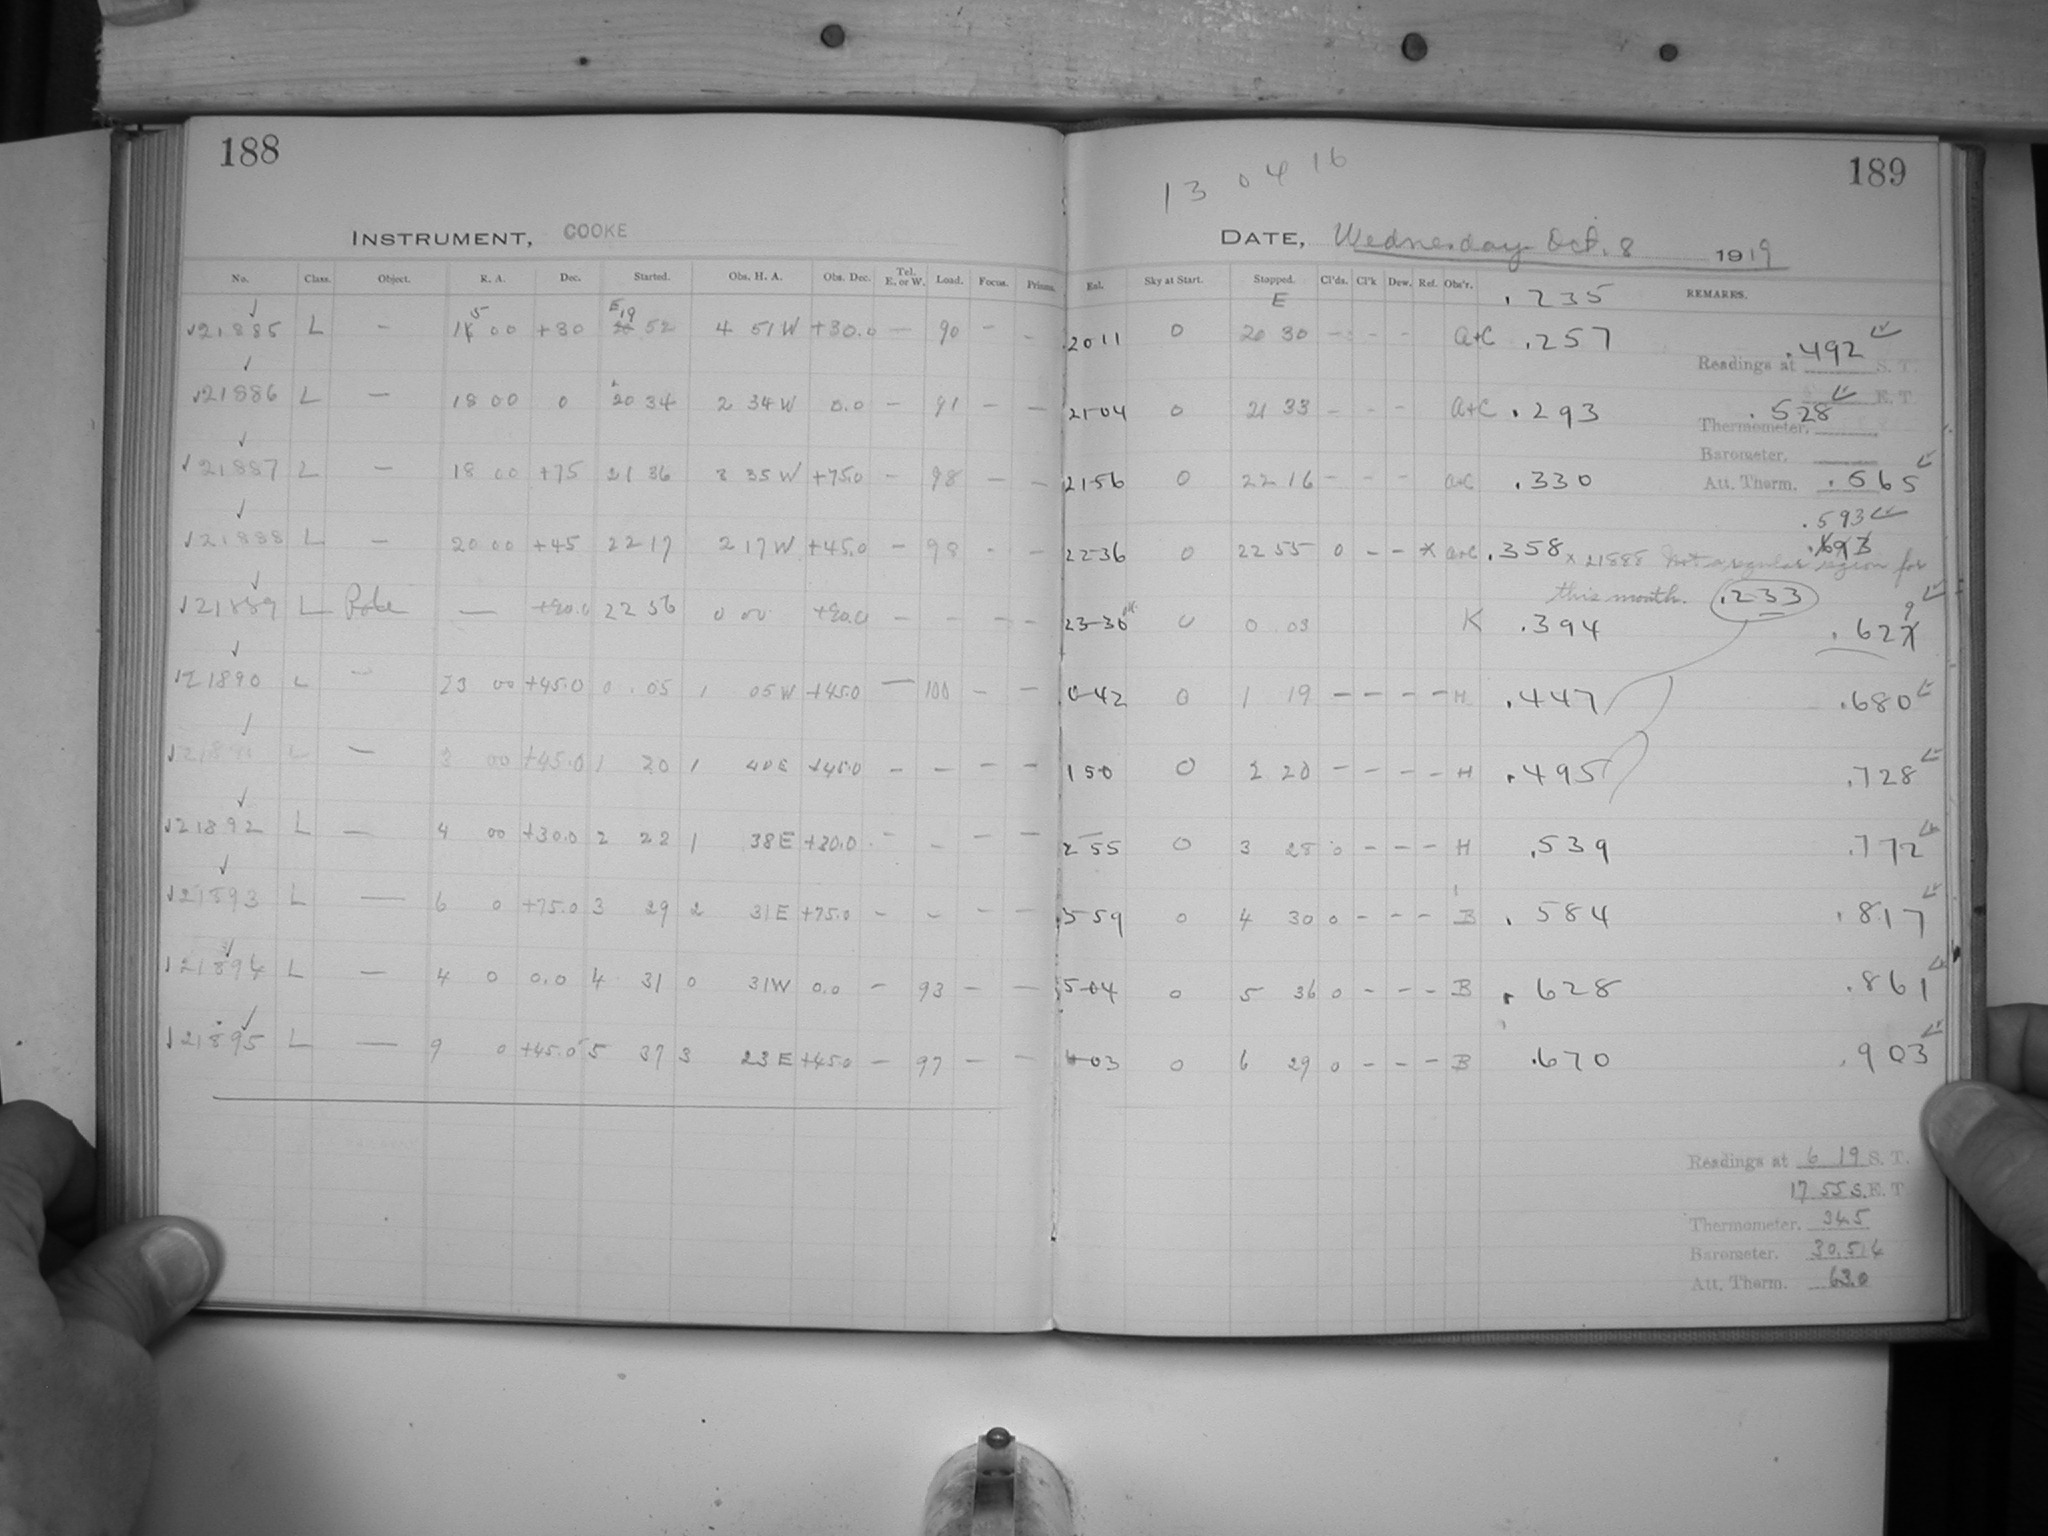 188
INSTRUMENT, COOKE
No. Class. Object. R. A. Dec. Started. Obs. H. A. Obs. Dec. Tel. E. or W. Load. Focus. Prisms.
21885 L – 15 00 +30 E 19 52 4 51 W +30.0 – 90 – –
21886 L – 18 00 0 20 34 2 34 W 0.0 – 91 – –
21887 L – 18 00 +75 21 36 3 35 W +75.0 – 98 – –
21888 L – 20 00 +45 22 17 2 17 W +45.0 – 98 – –
21889 L Pole — +90.0 22 56 0 00 +90.0 – – – –
21890 L – 23 00 +45.0 0 .05 1 05 W +45.0 — 100 – –
21891 L – 3 00 +45.0 1 20 1 40 E +45.0 – – – –
21892 L — 4 00 +30.0 2 22 1 38 E +30.0 – – – –
21893 L — 6 0 +75.0 3 29 2 31 E +75.0 – – – –
21894 L — 4 0 0.0 4 31 0 31 W 0.0 – 93 – –
21895 L — 9 0 +45.0 5 37 3 23 E +45.0 – 97 – –
13 04 16
189
DATE, Wednesday Oct. 8 1919
Ext. Sky at Start. Stopped. Cl'ds. Cl'k Dew. Ref. Obs'r. REMARKS.
E .235
2011 0 20 30 – – – A+C .257 .492
Readings at S. T.
E. T.
2104 0 21 33 – – – A+C .293 .528
Thermometer.
Barometer.
2156 0 22 16 – – – A+C .330 Att. Therm. .565
.593
2236 0 22 55 0 – – x A+C .358 x 21888 Not a regular region for .693
this month. .233
23-30 0 0 03 K .394 .629
0-42 0 1 19 – – – – H .447 .680
150 0 2 20 – – – – H .495 .728
2 55 0 3 28 0 – – – H .539 .772
3-59 0 4 30 0 – – – B .584 .817
5-04 0 5 36 0 – – – B .628 .861
03 0 6 29 0 – – – B .670 .903
Readings at 6 19 S. T.
17 55 S. E. T
Thermometer. 34.5
Barometer. 30.514
Att. Therm. 63.0